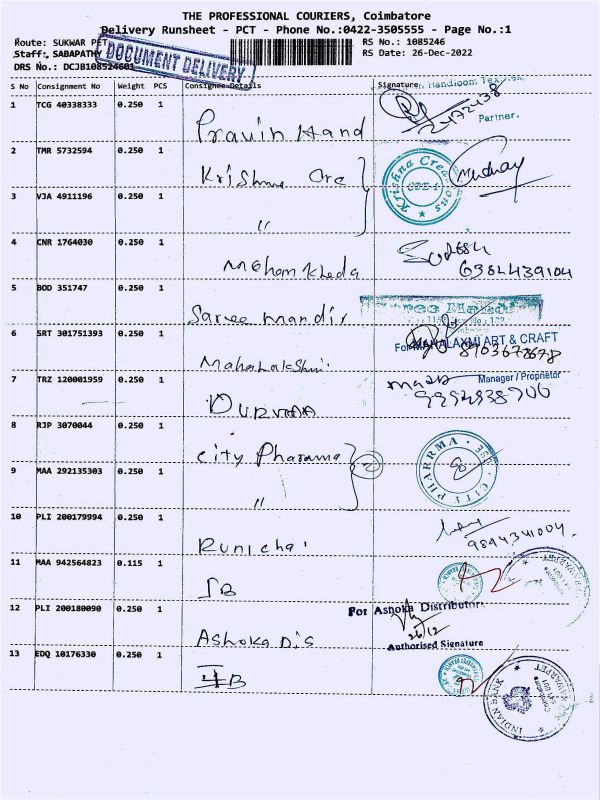 THE PROFESSIONAL COURIERS, Coimbatore
Delivery Runsheet - PCT - Phone No.:0422-3505555 - Page No.:1
Route: SUKWAR PET
RS No.: 1085246
Staff: SABAPATHY
RS Date: 26-Dec-2022
DRS No.: DCJB108524601
DOCUMENT DELIVERY
S No Consignment No Weight PCS Consignee Details Signature
1 TCG 40338333 0.250 1 Pravin Hand
Partner.
2 TMR 5732594 0.250 1 Krishna Cre
Krishna Creations
CBE-1
3 VJA 4911196 0.250 1 "
4 CNR 1764030 0.250 1 Moham Kheda
6384439104
5 BOD 351747 0.250 1 Saree mandir
6 SRT 301751393 0.250 1 Mahalakshmi
For MAHALAXMI ART & CRAFT
8903678678
7 TRZ 120001959 0.250 1
Manager / Proprietor
8 RJP 3070044 0.250 1 City Pharama 2
CITY PHARRMA
9 MAA 292135303 0.250 1 "
10 PLI 200179994 0.250 1 Runicha
9894341004
11 MAA 942564823 0.115 1 IB
12 PLI 200180090 0.250 1 Ashoka Dis
For Ashoka Distributor
26/12
Authorised Signature
13 EDQ 10176330 0.250 1 IB
INDIAN BANK